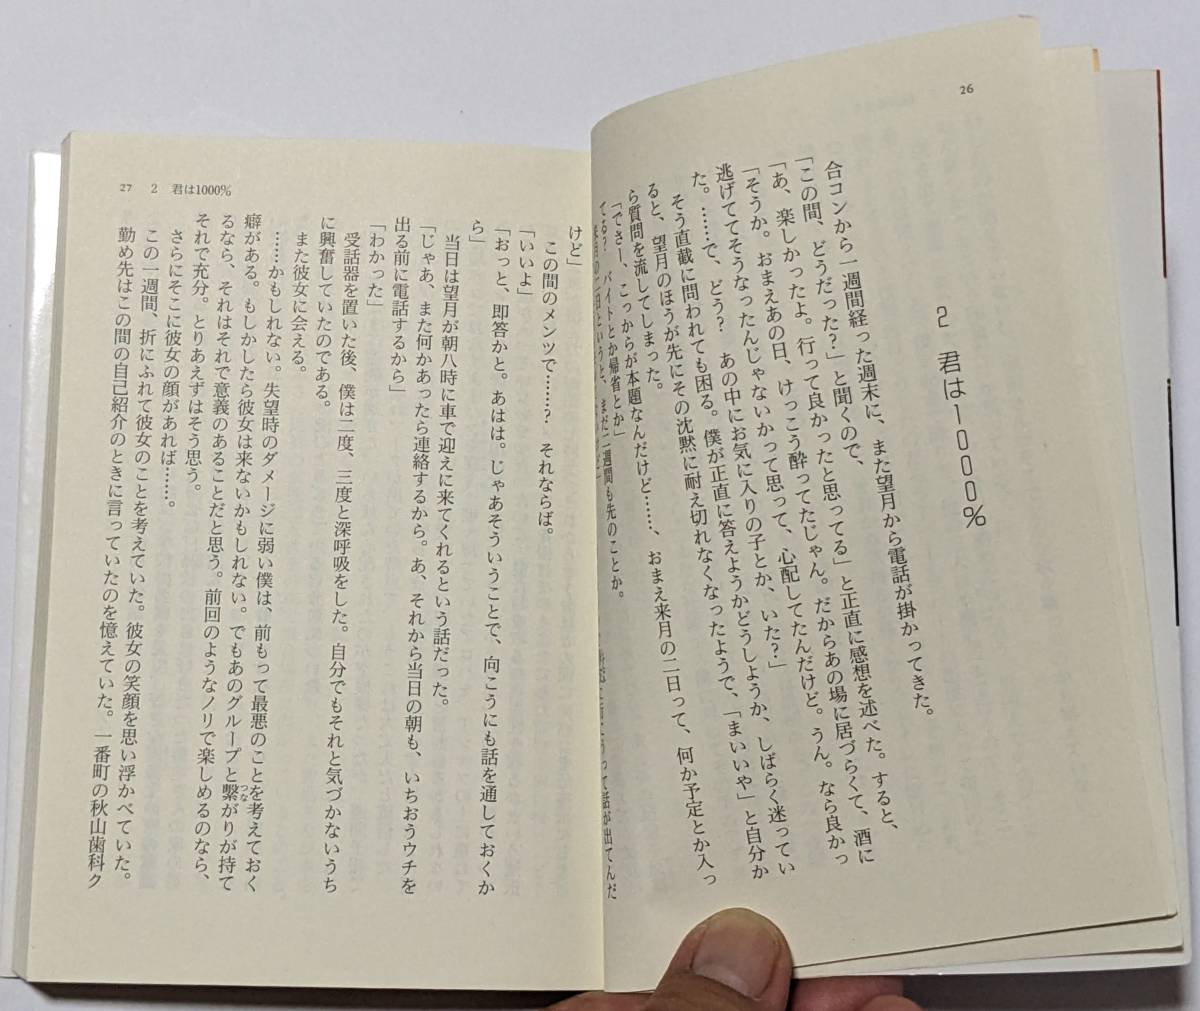 26
2 君は1000%
合コンから一週間経った週末に、また望月から電話が掛かってきた。
「この間、どうだった?」と聞くので、
「あ、楽しかったよ。行って良かったと思ってる」と正直に感想を述べた。すると、
「そうか。おまえあの日、けっこう酔ってたじゃん。だからあの場に居づらくて、酒に
逃げててそうなったんじゃないかって思って、心配してたんだけど。うん。なら良かっ
た。……で、どう? あの中にお気に入りの子とか、いた?」
そう直截に問われても困る。僕が正直に答えようかどうしようか、しばらく迷ってい
ると、望月のほうが先にその沈黙に耐え切れなくなったようで、「まいいや」と自分か
ら質問を流してしまった。
「でさー、こっからが本題なんだけど……、おまえ来月の二日って、何か予定とか入っ
てる? バイトとか帰省とか」
来月の二日というと、まだ二週間も先のことか。
って話が出てんだ
27 2 君は1000%
けど」
この間のメンツで……? それならば。
「いいよ」
「おっと、即答かと。あはは。じゃあそういうことで、向こうにも話を通しておくか
ら」
当日は望月が朝八時に車で迎えに来てくれるという話だった。
「じゃあ、また何かあったら連絡するから。あ、それから当日の朝も、いちおうウチを
出る前に電話するから」
「わかった」
受話器を置いた後、僕は二度、三度と深呼吸をした。自分でもそれと気づかないうち
に興奮していたのである。
また彼女に会える。
……かもしれない。失望時のダメージに弱い僕は、前もって最悪のことを考えておく
癖がある。もしかしたら彼女は来ないかもしれない。でもあのグループと繋がりが持て
るなら、それはそれで意義のあることだと思う。前回のようなノリで楽しめるのなら、
それで充分。とりあえずはそう思う。
さらにそこに彼女の顔があれば……。
この一週間、折にふれて彼女のことを考えていた。彼女の笑顔を思い浮かべていた。
勤め先はこの間の自己紹介のときに言っていたのを憶えていた。一番町の秋山歯科ク